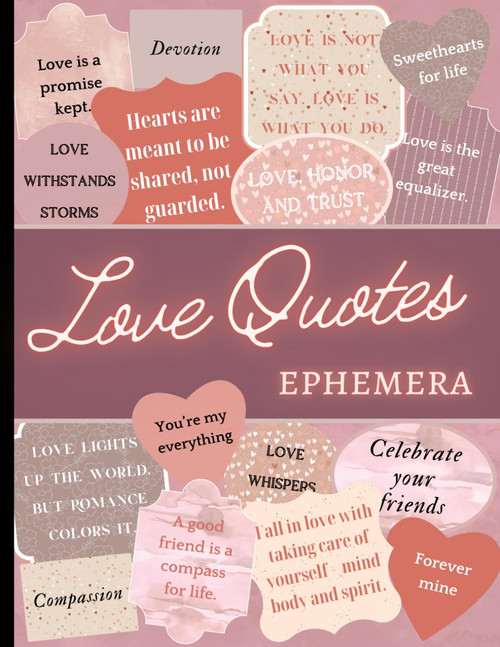 Love is a
promise
kept.
Devotion
LOVE IS NOT
WHAT YOU
SAY. LOVE IS
WHAT YOU DO.
Sweethearts
for life
Hearts are
meant to be
shared, not
guarded.
LOVE
WITHSTANDS
STORMS
LOVE, HONOR
AND TRUST
Love is the
great
equalizer.
Love Quotes
EPHEMERA
You're my
everything
LOVE LIGHTS
UP THE WORLD,
BUT ROMANCE
COLORS IT.
LOVE
WHISPERS
Celebrate
your
friends
A good
friend is a
compass
for life.
Fall in love with
taking care of
yourself - mind
body and spirit.
Compassion
Forever
mine